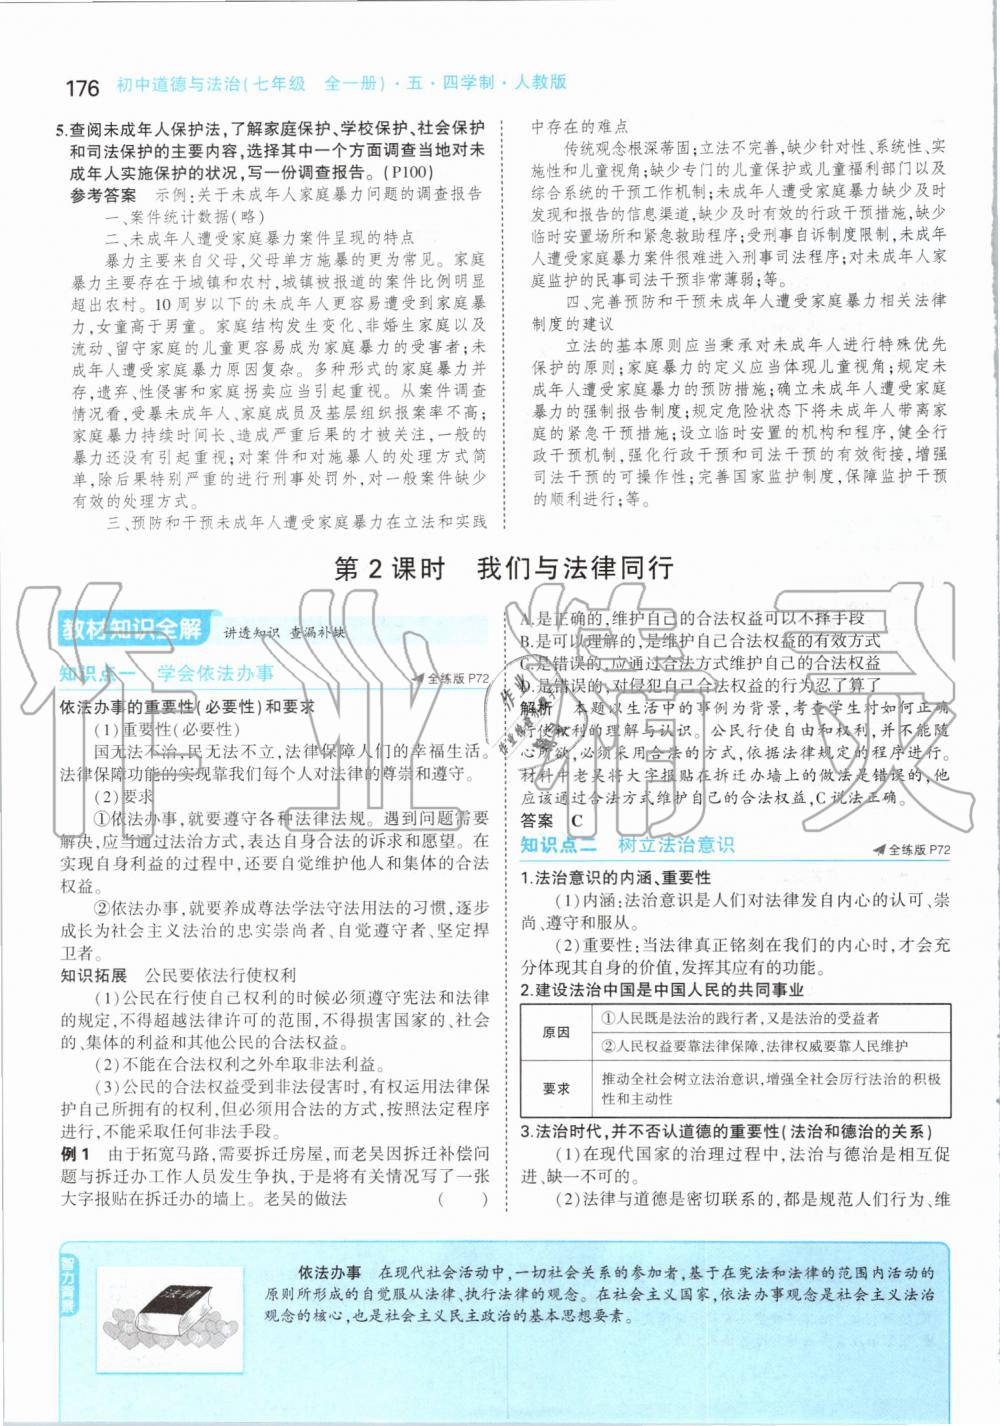 176 初中道德与法治(七年级 全一册)·五·四学制·人教版
5.查阅未成年人保护法,了解家庭保护、学校保护、社会保护
和司法保护的主要内容,选择其中一个方面调查当地对未
成年人实施保护的状况,写一份调查报告。(P100)
参考答案 示例:关于未成年人家庭暴力问题的调查报告
一、案件统计数据(略)
二、未成年人遭受家庭暴力案件呈现的特点
暴力主要来自父母,父母单方施暴的更为常见。家庭
暴力主要存在于城镇和农村,城镇被报道的案件比例明显
超出农村。10 周岁以下的未成年人更容易遭受到家庭暴
力,女童高于男童。家庭结构发生变化、非婚生家庭以及
流动、留守家庭的儿童更容易成为家庭暴力的受害者;未
成年人遭受家庭暴力原因复杂。多种形式的家庭暴力并
存,遗弃、性侵害和家庭拐卖应当引起重视。从案件调查
情况看,受暴未成年人、家庭成员及基层组织报案率不高;
家庭暴力持续时间长、造成严重后果的才被关注,一般的
暴力还没有引起重视;对案件和对施暴人的处理方式简
单,除后果特别严重的进行刑事处罚外,对一般案件缺少
有效的处理方式。
三、预防和干预未成年人遭受家庭暴力在立法和实践
中存在的难点
传统观念根深蒂固;立法不完善,缺少针对性、系统性、
实施性和儿童视角;缺少专门的儿童保护或儿童福利部门以及
综合系统的干预工作机制;未成年人遭受家庭暴力缺少及时
发现和报告的信息渠道,缺少及时有效的行政干预措施,缺少
临时安置场所和紧急救助程序;受刑事自诉制度限制,未成年
人遭受家庭暴力案件很难进入刑事司法程序;对未成年人家
庭监护的民事司法干预非常薄弱;等。
四、完善预防和干预未成年人遭受家庭暴力相关法律
制度的建议
立法的基本原则应当秉承对未成年人进行特殊优先
保护的原则;家庭暴力的定义应当体现儿童视角;规定未
成年人遭受家庭暴力的预防措施;确立未成年人遭受家庭
暴力的强制报告制度;规定危险状态下将未成年人带离家
庭的紧急干预措施;设立临时安置的机构和程序,健全行
政干预机制,强化行政干预和司法干预的有效衔接,增强
司法干预的可操作性;完善国家监护制度,保障监护干预
的顺利进行;等。
第 2 课时 我们与法律同行
教材知识全解 讲透知识 查漏补缺
知识点一 学会依法办事 全练版 P72
依法办事的重要性(必要性)和要求
(1)重要性(必要性)
国无法不治,民无法不立,法律保障人们的幸福生活。
法律保障功能的实现靠我们每个人对法律的尊崇和遵守。
(2)要求
①依法办事,就要遵守各种法律法规。遇到问题需要
解决,应当通过法治方式,表达自身合法的诉求和愿望。在
实现自身利益的过程中,还要自觉维护他人和集体的合法
权益。
②依法办事,就要养成尊法学法守法用法的习惯,逐步
成长为社会主义法治的忠实崇尚者、自觉遵守者、坚定捍
卫者。
知识拓展 公民要依法行使权利
(1)公民在行使自己权利的时候必须遵守宪法和法律
的规定,不得超越法律许可的范围,不得损害国家的、社会
的、集体的利益和其他公民的合法权益。
(2)不能在合法权利之外牟取非法利益。
(3)公民的合法权益受到非法侵害时,有权运用法律保
护自己所拥有的权利,但必须用合法的方式,按照法定程序
进行,不能采取任何非法手段。
例 1 由于拓宽马路,需要拆迁房屋,而老吴因拆迁补偿问
题与拆迁办工作人员发生争执,于是将有关情况写了一张
大字报贴在拆迁办的墙上。老吴的做法 ( )
A.是正确的,维护自己的合法权益可以不择手段
B.是可以理解的,是维护自己合法权益的有效方式
C.是错误的,应通过合法方式维护自己的合法权益
D.是错误的,对侵犯自己合法权益的行为忍了算了
解析 本题以生活中的事例为背景,考查学生对如何正确
行使权利的理解与认识。公民行使自由和权利,并不能随
心所欲,必须采用合法的方式,依据法律规定的程序进行。
材料中老吴将大字报贴在拆迁办墙上的做法是错误的,他
应该通过合法方式维护自己的合法权益,C 说法正确。
答案 C
知识点二 树立法治意识 全练版 P72
1.法治意识的内涵、重要性
(1)内涵:法治意识是人们对法律发自内心的认可、崇
尚、遵守和服从。
(2)重要性:当法律真正铭刻在我们的内心时,才会充
分体现其自身的价值,发挥其应有的功能。
2.建设法治中国是中国人民的共同事业
原因 ①人民既是法治的践行者,又是法治的受益者
②人民权益要靠法律保障,法律权威要靠人民维护
要求 推动全社会树立法治意识,增强全社会厉行法治的积极
性和主动性
3.法治时代,并不否认道德的重要性(法治和德治的关系)
(1)在现代国家的治理过程中,法治与德治是相互促
进、缺一不可的。
(2)法律与道德是密切联系的,都是规范人们行为、维
智力背景
法律
依法办事 在现代社会活动中,一切社会关系的参加者,基于在宪法和法律的范围内活动的
原则所形成的自觉服从法律、执行法律的观念。在社会主义国家,依法办事观念是社会主义法治
观念的核心,也是社会主义民主政治的基本思想要素。
作业精灵